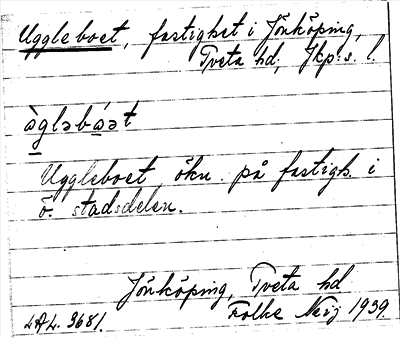 Uggleboet, fastighet i Jönköping,
Tveta hd, Jkp:s. l.
àgləbá̱ət
Uggleboet ökn. på fastigh. i
ö. stadsdelen.
Jönköping, Tveta hd
LAL. 3681.
Folke Neij 1939.